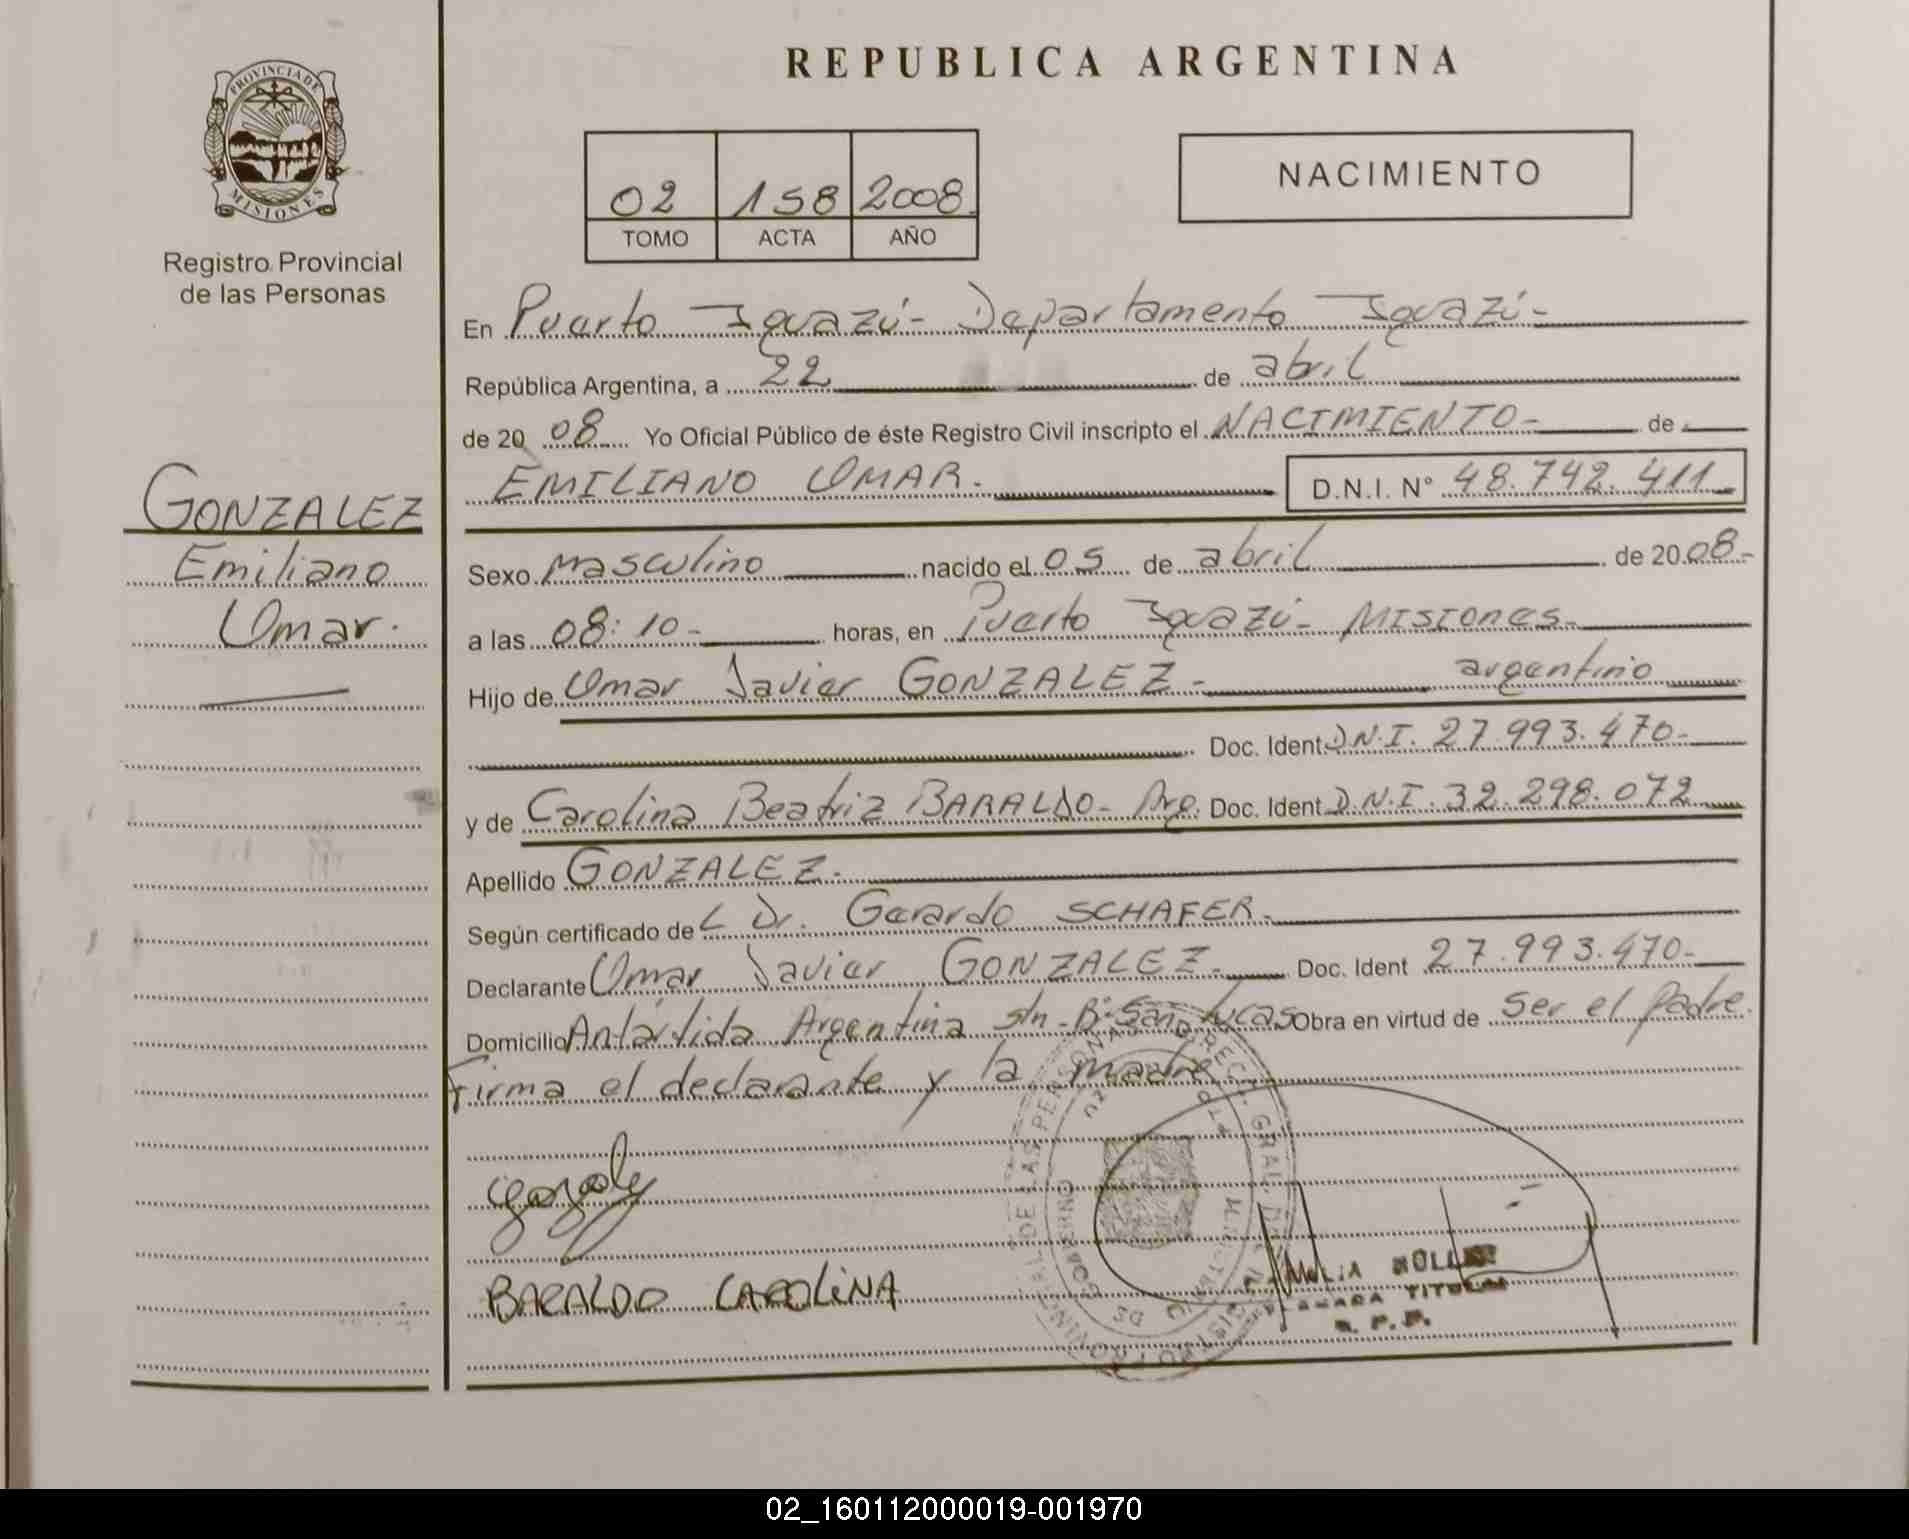 REPUBLICA ARGENTINA
PROVINCIA DE
MISIONES
Registro Provincial
de las Personas
02 158 2008
TOMO ACTA AÑO
NACIMIENTO
En Puerto Iguazú- Departamento Iguazú-
República Argentina, a 22 de abril
de 20 08 Yo Oficial Público de éste Registro Civil inscripto el NACIMIENTO- de
EMILIANO OMAR. D.N.I. N° 48.742.411
GONZALEZ
Emiliano
Omar.
Sexo masculino nacido el 05 de abril de 20 08-
a las 08:10- horas, en Puerto Iguazú- MISIONES-
Hijo de Omar Javier GONZALEZ- argentino
Doc. Ident D.N.I. 27.993.470-
y de Carolina Beatriz BARALDO- Arg. Doc. Ident D.N.I. 32.298.072
Apellido GONZALEZ-
Según certificado de L Dr. Gerardo SCHAFER-
Declarante Omar Javier GONZALEZ- Doc. Ident 27.993.470-
Domicilio Antártida Argentina s/n- B: San Lucas Obra en virtud de ser el padre.
Firma el declarante y la madre
BARALDO CAROLINA
TITULAR
R. P. P.
02_160112000019-001970